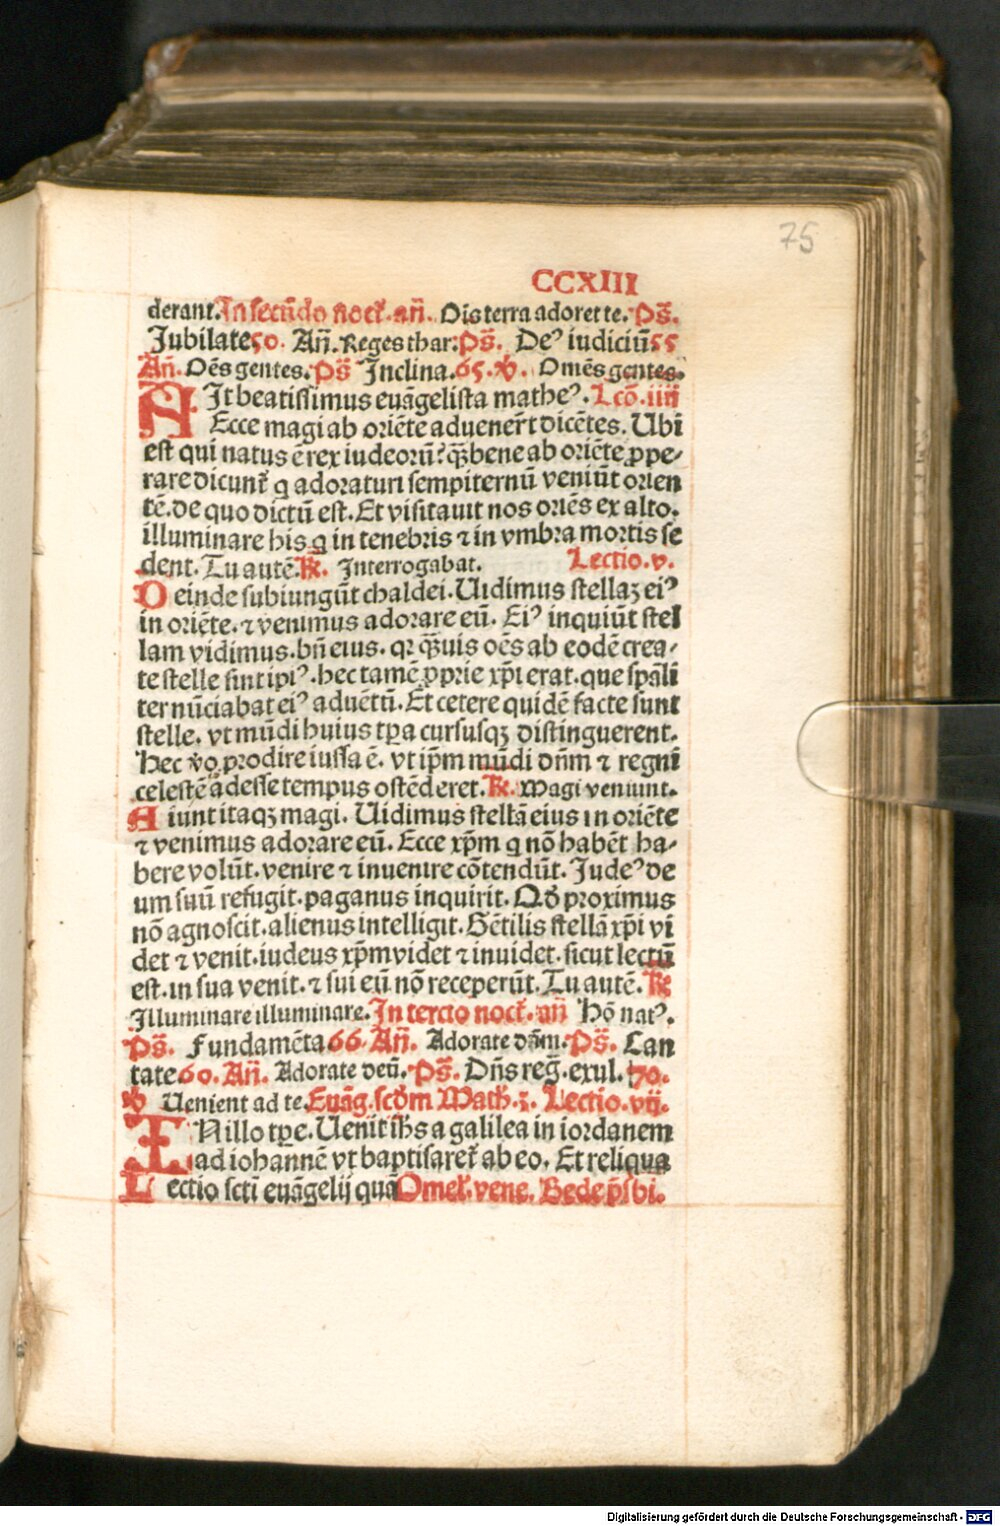 75
CCXIII
derant. In secūdo noct᷑. añ. Ois terra adoret te. Ps̄.
Jubilate 50. Añ. Reges thar: Ps̄. Deꝰ iudiciū 55
Añ. Oēs gentes. Ps̄ Inclina. 65. ℣. Omēs gentes.
AIt beatissimus euāgelista matheꝰ. Lcō. iiii
Ecce magi ab oriēte aduener̄t dicētes. Ubi
est qui natus ē rex iudeorū? qꝫ̄ bene ab oriēte ꝓpe-
rare dicunt᷑ q adoraturi sempiternū veniūt orien
tē. de quo dictū est. Et visitauit nos oriēs ex alto.
illuminare his q in tenebris ⁊ in vmbra mortis se
dent. Tu autē. ℟. Interrogabat. Lectio. v.
Deinde subiungūt chaldei. Uidimus stellaꝫ eiꝰ
in oriēte. ⁊ venimus adorare eū. Eiꝰ inquiūt stel
lam vidimus. bñ eius. qꝛ qꝫ̄uis oēs ab eodē crea-
te stelle sint ipiꝰ. hec tamē ꝓprie xp̄i erat. que spāli
ter nūciabat eiꝰ aduētū. Et cetere quidē facte sunt
stelle. vt mūdi huius tꝑa cursusqꝫ distinguerent.
Hec v̆o prodire iussa ē. vt ip̄m mūdi dn̄m ⁊ regni
celestē adesse tempus ostēderet. ℟. Magi veniunt.
Aiunt itaqꝫ magi. Uidimus stellā eius in oriēte
⁊ venimus adorare eū. Ecce xp̄m q nō habēt ha-
bere volūt. venire ⁊ inuenire cōtendūt. Judeꝰ de
um suū refugit. paganus inquirit. Qď proximus
nō agnoscit. alienus intelligit. Gētilis stellā xp̄i vi
det ⁊ venit. iudeus xp̄m videt ⁊ inuidet. sicut lectū
est. in sua venit. ⁊ sui eū nō receperūt. Tu autē. ℟
Illuminare illuminare. In tercio noct᷑. añ Hō natꝰ.
Ps̄. Fundamēta 66. Añ. Adorate dām. Ps̄. Can
tate 60. Añ. Adorate deū. Ps̄. Dn̄s reḡ. exul. 70.
℣ Uenient ad te. Euāg. scďm Math. 3. Lectio. vii.
IN illo tꝑe. Uenit ih̄s a galilea in iordanem
ad iohannē vt baptisaret᷑ ab eo. Et reliqua
Lectio scti euāgelij quā Omel᷑. vene. Bede p̄sbi.
Digitalisierung gefördert durch die Deutsche Forschungsgemeinschaft - DFG